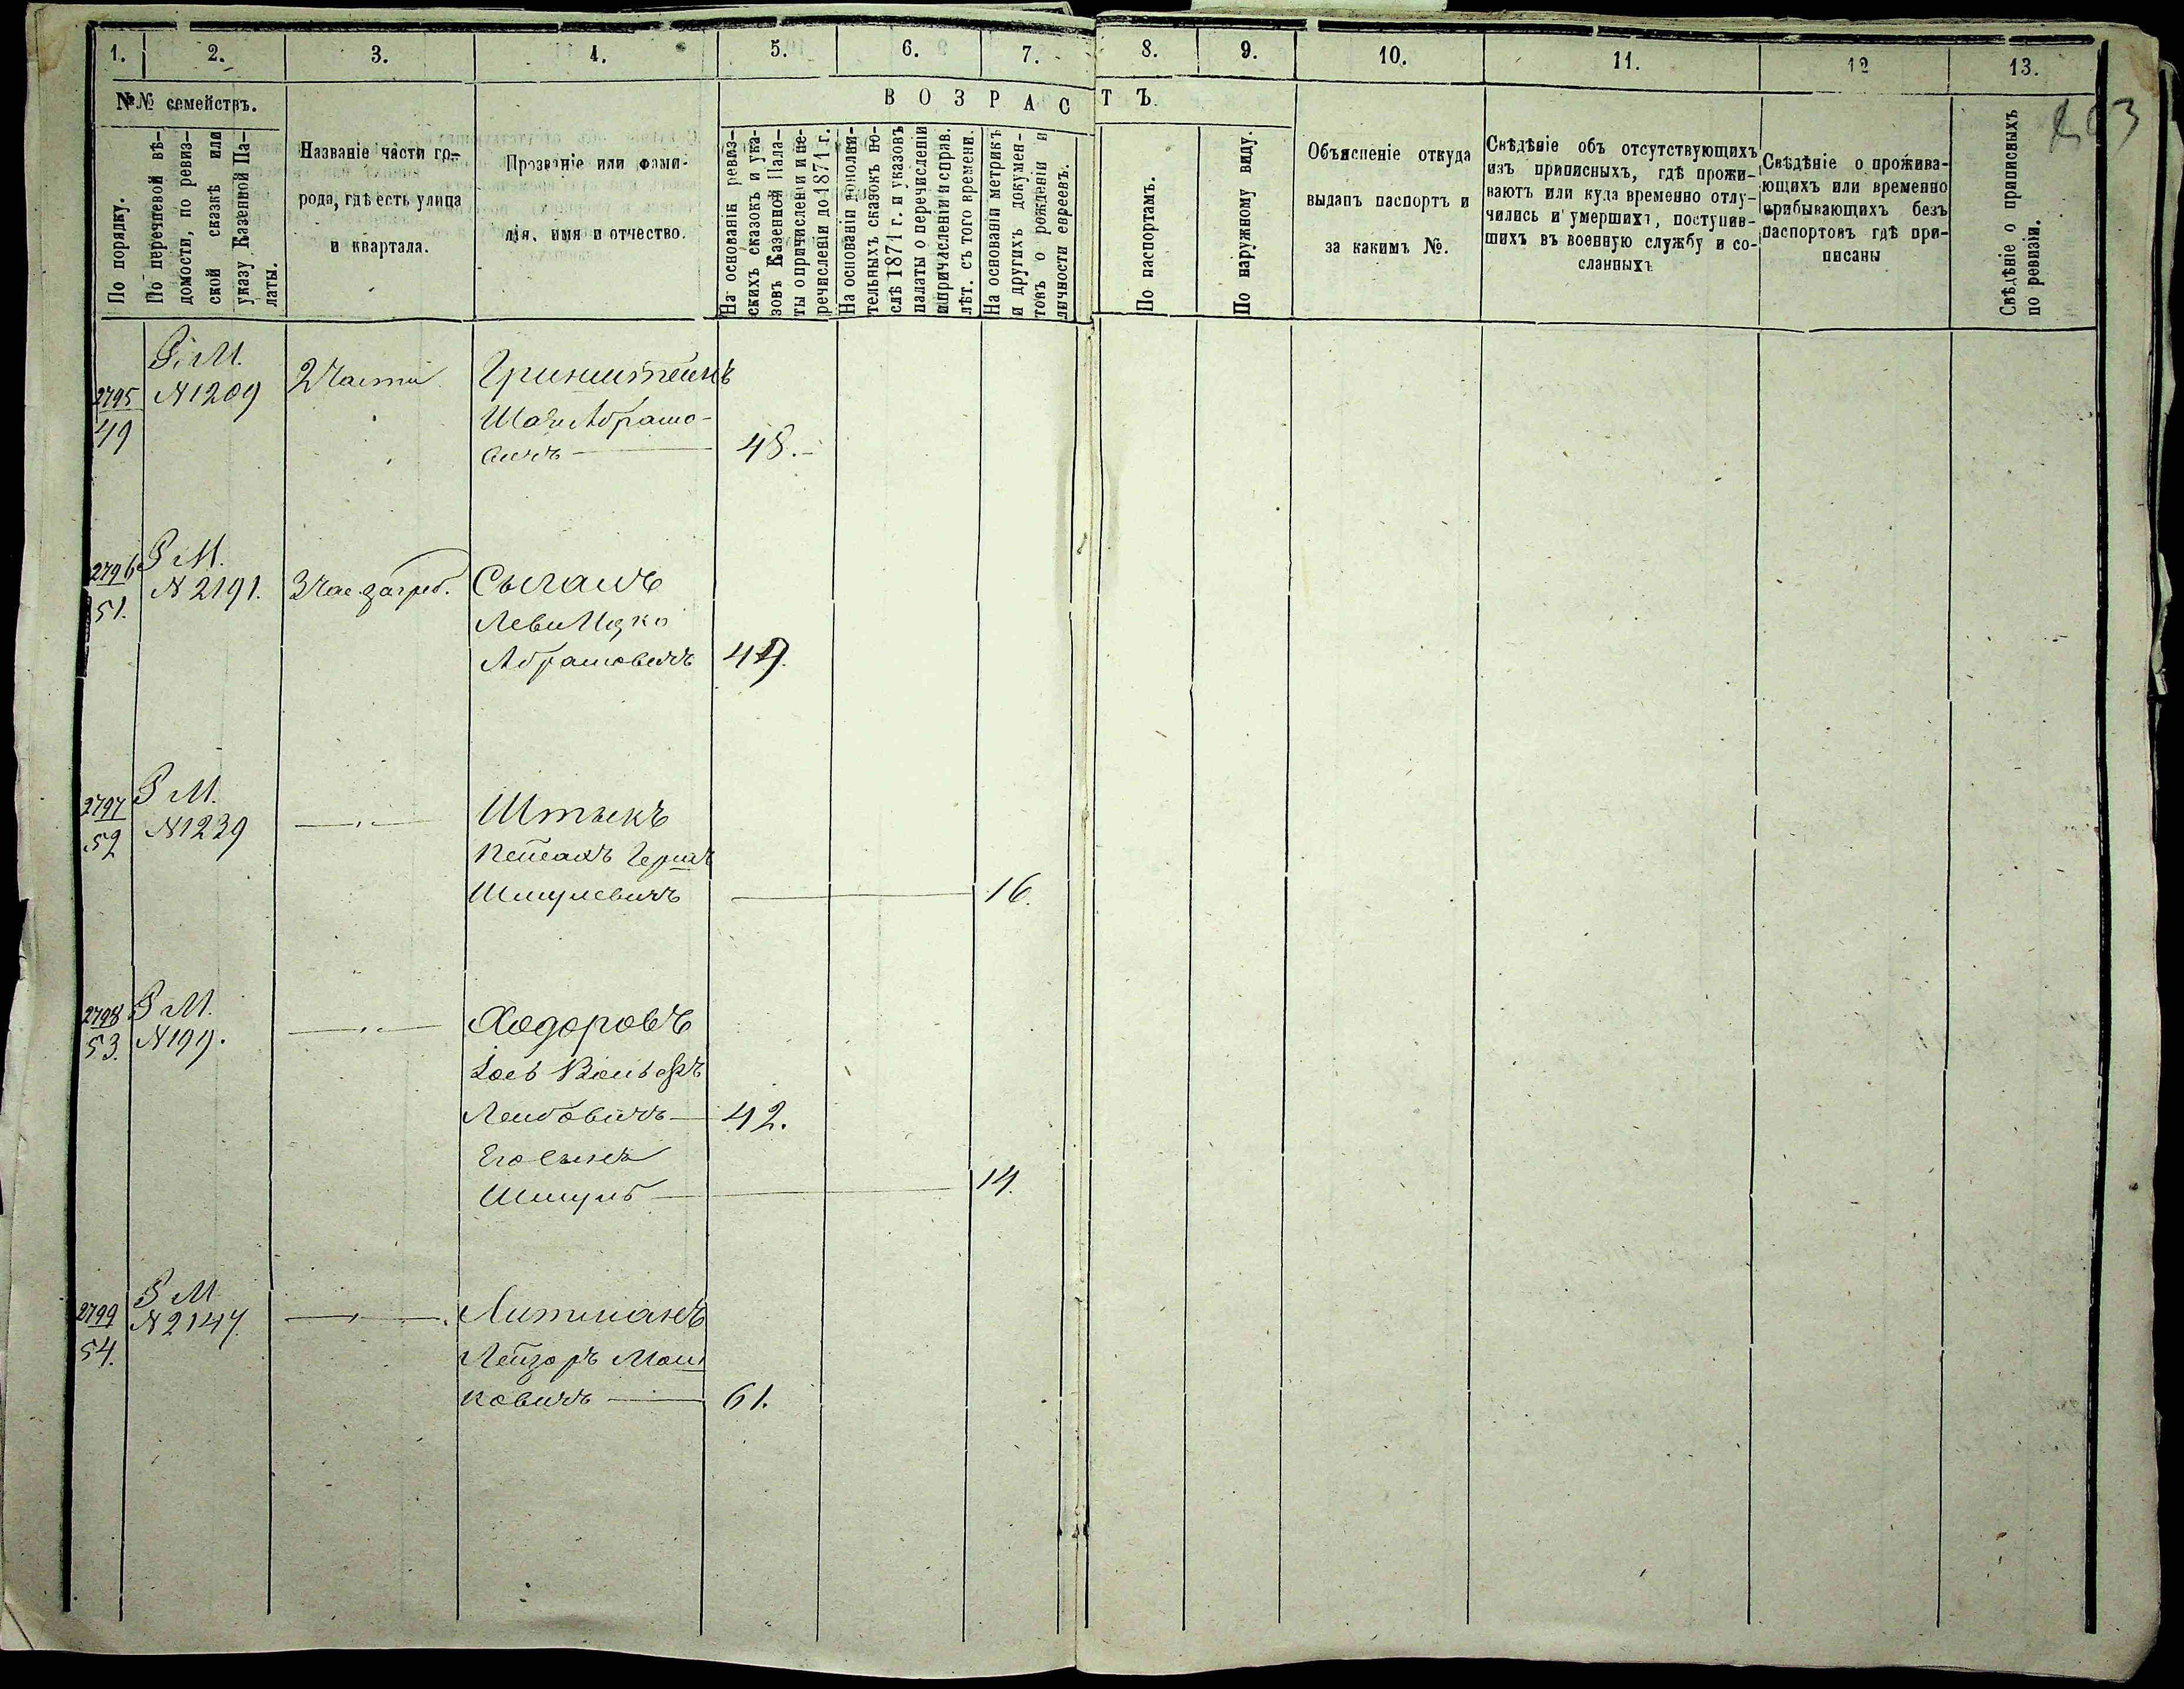 1. 2. 3. 4. 5. 6. 7. 8. 9. 10. 11. 12 13.
203
№№ семействъ.
По порядку.
По перечневой вѣ-
домости, по ревиз-
ской сказкѣ или
указу Казенной Па-
латы.
Названіе части го-
рода, гдѣ есть улица
и квартала.
Прозваніе или фами-
лія, имя и отчество.
ВОЗРАСТЪ.
На основаніи ревиз-
скихъ сказокъ и ука-
зовъ Казенной Пала-
ты о причисленіи и пе-
речисленіи до 1871 г.
На основаніи дополни-
тельныхъ сказокъ по-
слѣ 1871 г. и указовъ
палаты о перечисленіи
и причисленіи и справ.
лѣт. съ того времени.
На основаніи метрикъ
и другихъ докумен-
товъ о рожденіи и
личности евреевъ.
По паспортамъ.
По наружному виду.
Объясненіе откуда
выданъ паспортъ и
за какимъ №.
Свѣдѣніе объ отсутствующихъ
изъ приписныхъ, гдѣ прожи-
ваютъ или куда временно отлу-
чились и умершихъ, поступив-
шихъ въ военную службу и со-
сланныхъ
Свѣдѣніе о прожива-
ющихъ или временно
прибывающихъ безъ
паспортовъ гдѣ при-
писаны
Свѣдѣніе о приписныхъ
по ревизіи.
2795
49
Р. М.
№ 1209
2 Части
Гринштейнъ
Шая Абрамо-
вичъ 48.
2796
51.
Р М.
№ 2191.
3 Час. загреб.
Сыганъ
Леви Ицко
Абрамовичъ 49.
2797
52
Р М.
№ 1239
Штыкъ
Пейсахъ Гершъ
Шмулевичъ 16.
2798
53.
Р М.
№ 199.
Ходоровъ
Іось Вольфъ
Лейбовичъ 42.
Его сынъ
Шмуль 14.
2799
54.
Р М
№ 2147
Литманъ
Лейзоръ Мош
ковичъ 61.